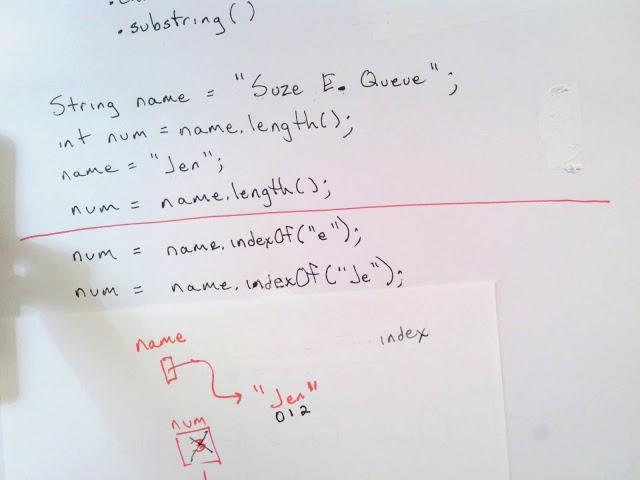 .substring()
String name = "Suze E. Queue";
int num = name.length();
name = "Jen";
num = name.length();
num = name.indexOf("e");
num = name.indexOf("Je");
name
index
"Jen"
0 1 2
num